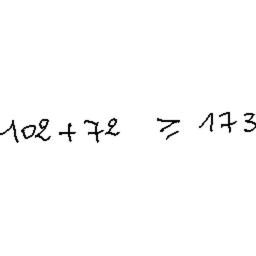 102 + 72 ≥ 173